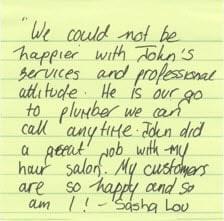 "We could not be
happier with John's
services and professional
attitude. He is our go
to plumber we can
call anytime. John did
a great job with my
hair salon. My customers
are so happy and so
am I! - Sasha Lou